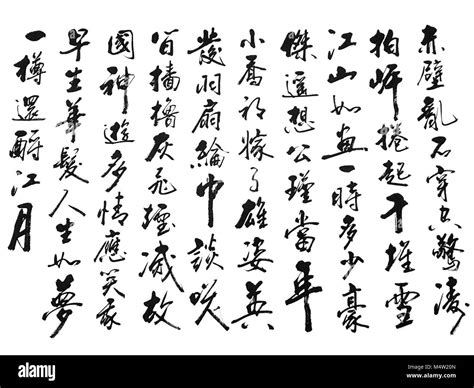 赤壁亂石穿空驚濤
拍岸捲起千堆雪
江山如畫一時多少豪
傑遙想公瑾當年
小喬初嫁了雄姿英
發羽扇綸巾談笑
間檣櫓灰飛煙滅故
國神遊多情應笑我
早生華髮人生如夢
一樽還酹江月
alamy stock photo
M4W20N
www.alamy.com